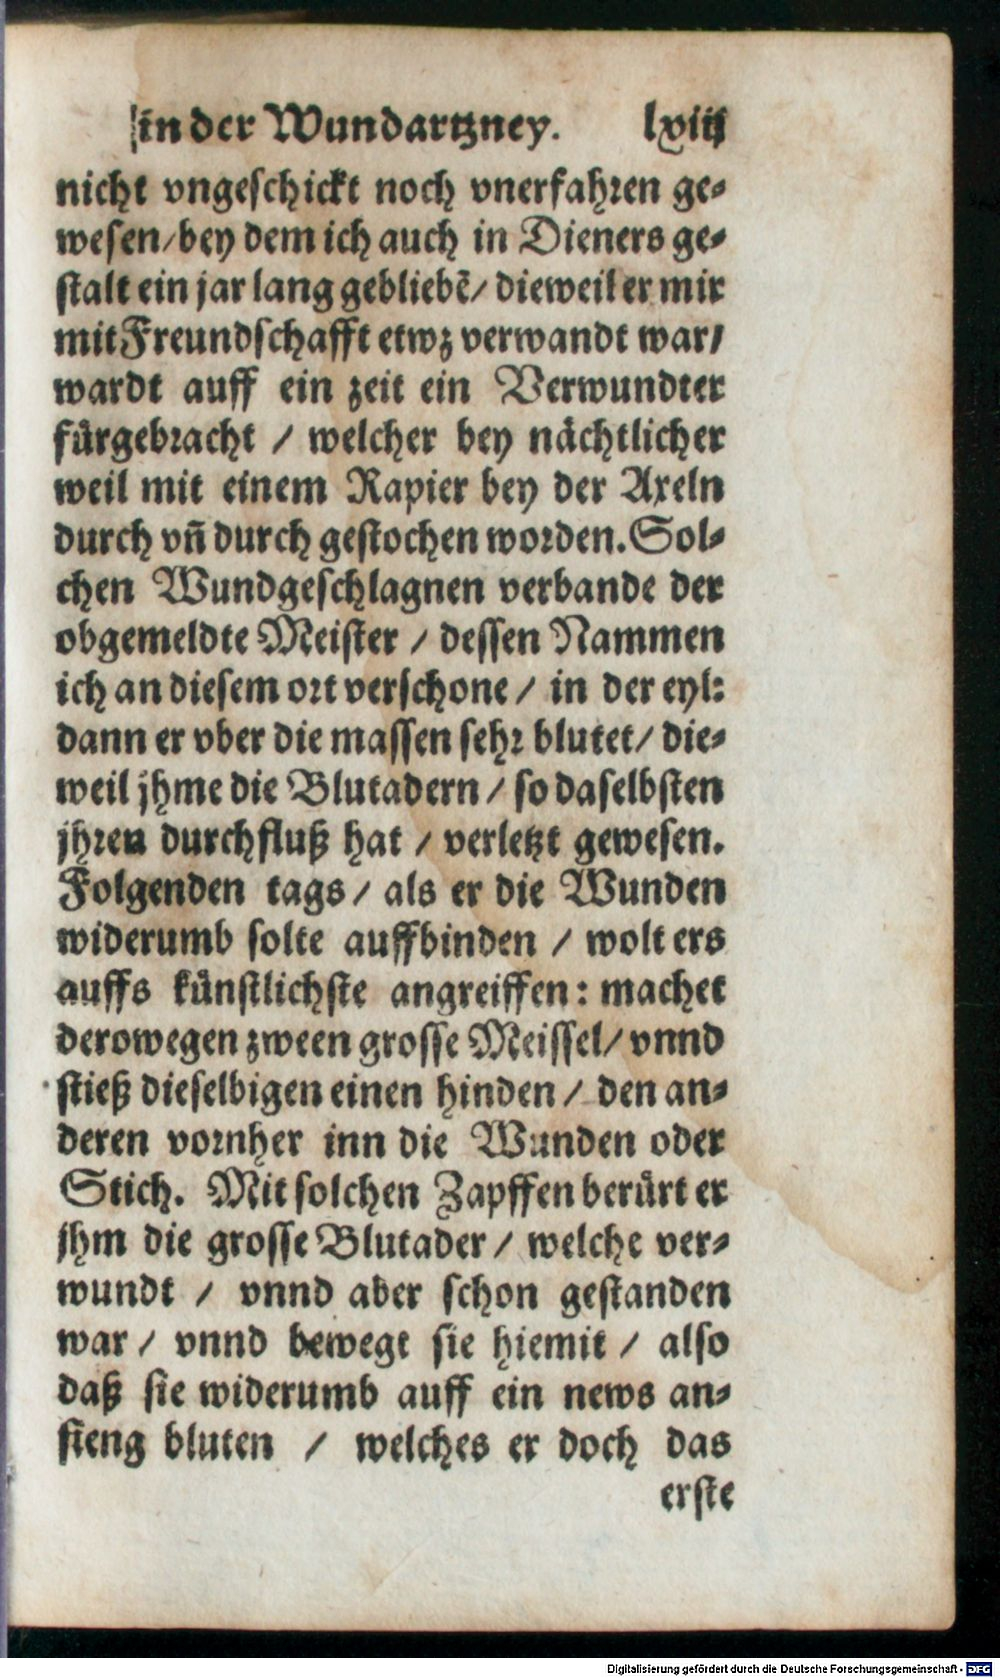 in der Wundartzney. lxiij
nicht vngeschickt noch vnerfahren ge-
wesen/bey dem ich auch in Dieners ge-
stalt ein jar lang gebliebẽ/ dieweil er mir
mit Freundschafft etwz verwandt war/
wardt auff ein zeit ein Verwundter
fürgebracht / welcher bey nächtlicher
weil mit einem Rapier bey der Axeln
durch vñ durch gestochen worden. Sol-
chen Wundgeschlagnen verbande der
obgemeldte Meister / dessen Nammen
ich an diesem ort verschone / in der eyl:
dann er vber die massen sehr blutet/ die-
weil jhme die Blutadern / so daselbsten
jhren durchfluß hat / verletzt gewesen.
Folgenden tags / als er die Wunden
widerumb solte auffbinden / wolt ers
auffs künstlichste angreiffen: machet
derowegen zween grosse Meissel/ vnnd
stieß dieselbigen einen hinden / den an-
deren vornher inn die Wunden oder
Stich. Mit solchen Zapffen berürt er
jhm die grosse Blutader / welche ver-
wundt / vnnd aber schon gestanden
war / vnnd bewegt sie hiemit / also
daß sie widerumb auff ein news an-
fieng bluten / welches er doch das
erste
Digitalisierung gefördert durch die Deutsche Forschungsgemeinschaft - DFG